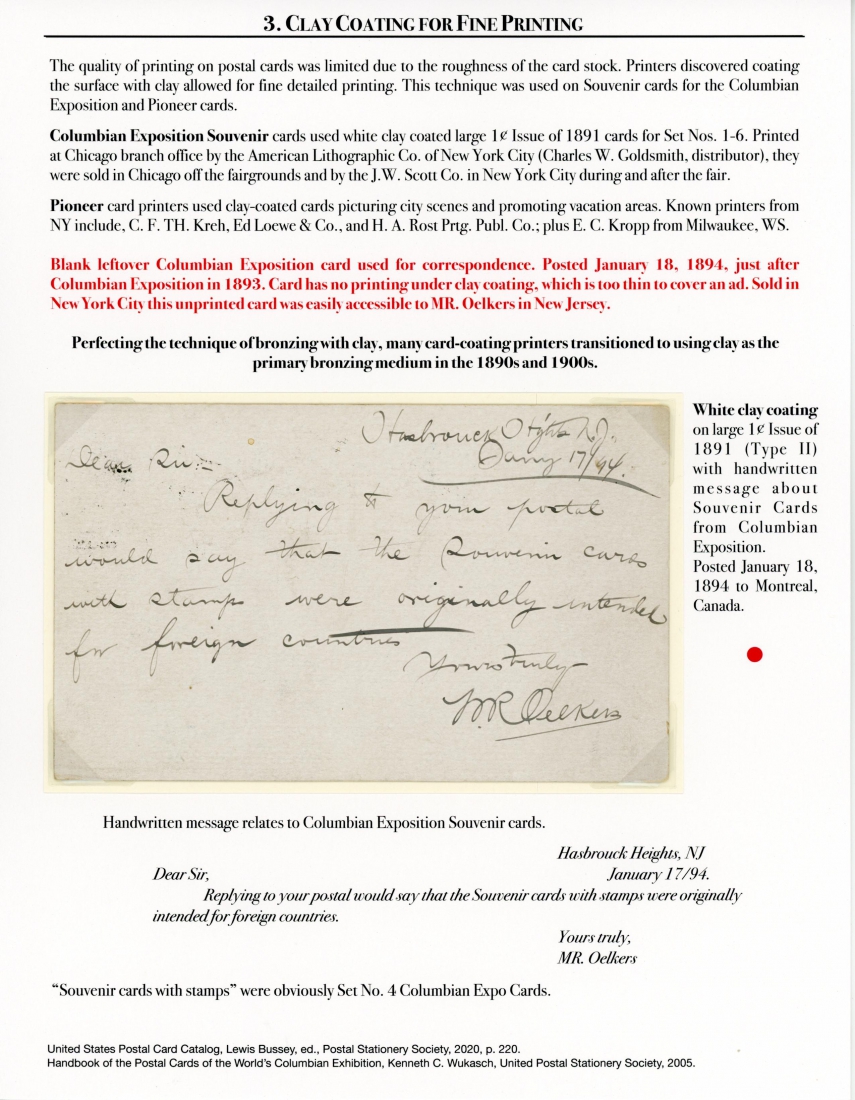 3. CLAY COATING FOR FINE PRINTING
The quality of printing on postal cards was limited due to the roughness of the card stock. Printers discovered coating
the surface with clay allowed for fine detailed printing. This technique was used on Souvenir cards for the Columbian
Exposition and Pioneer cards.
Columbian Exposition Souvenir cards used white clay coated large 1¢ Issue of 1891 cards for Set Nos. 1-6. Printed
at Chicago branch office by the American Lithographic Co. of New York City (Charles W. Goldsmith, distributor), they
were sold in Chicago off the fairgrounds and by the J.W. Scott Co. in New York City during and after the fair.
Pioneer card printers used clay-coated cards picturing city scenes and promoting vacation areas. Known printers from
NY include, C. F. TH. Kreh, Ed Loewe & Co., and H. A. Rost Prtg. Publ. Co.; plus E. C. Kropp from Milwaukee, WS.
Blank leftover Columbian Exposition card used for correspondence. Posted January 18, 1894, just after
Columbian Exposition in 1893. Card has no printing under clay coating, which is too thin to cover an ad. Sold in
New York City this unprinted card was easily accessible to MR. Oelkers in New Jersey.
Perfecting the technique of bronzing with clay, many card-coating printers transitioned to using clay as the
primary bronzing medium in the 1890s and 1900s.
Hasbrouck Hghts N.J.
Jany 17/94.
Dear Sir:-
Replying to your postal
would say that the Souvenir cards
with stamps were originally intended
for foreign countries
Yours truly
MR Oelkers
White clay coating
on large 1¢ Issue of
1891 (Type II)
with handwritten
message about
Souvenir Cards
from Columbian
Exposition.
Posted January 18,
1894 to Montreal,
Canada.
Handwritten message relates to Columbian Exposition Souvenir cards.
Hasbrouck Heights, NJ
January 17/94.
Dear Sir,
Replying to your postal would say that the Souvenir cards with stamps were originally
intended for foreign countries.
Yours truly,
MR. Oelkers
“Souvenir cards with stamps” were obviously Set No. 4 Columbian Expo Cards.
United States Postal Card Catalog, Lewis Bussey, ed., Postal Stationery Society, 2020, p. 220.
Handbook of the Postal Cards of the World's Columbian Exhibition, Kenneth C. Wukasch, United Postal Stationery Society, 2005.